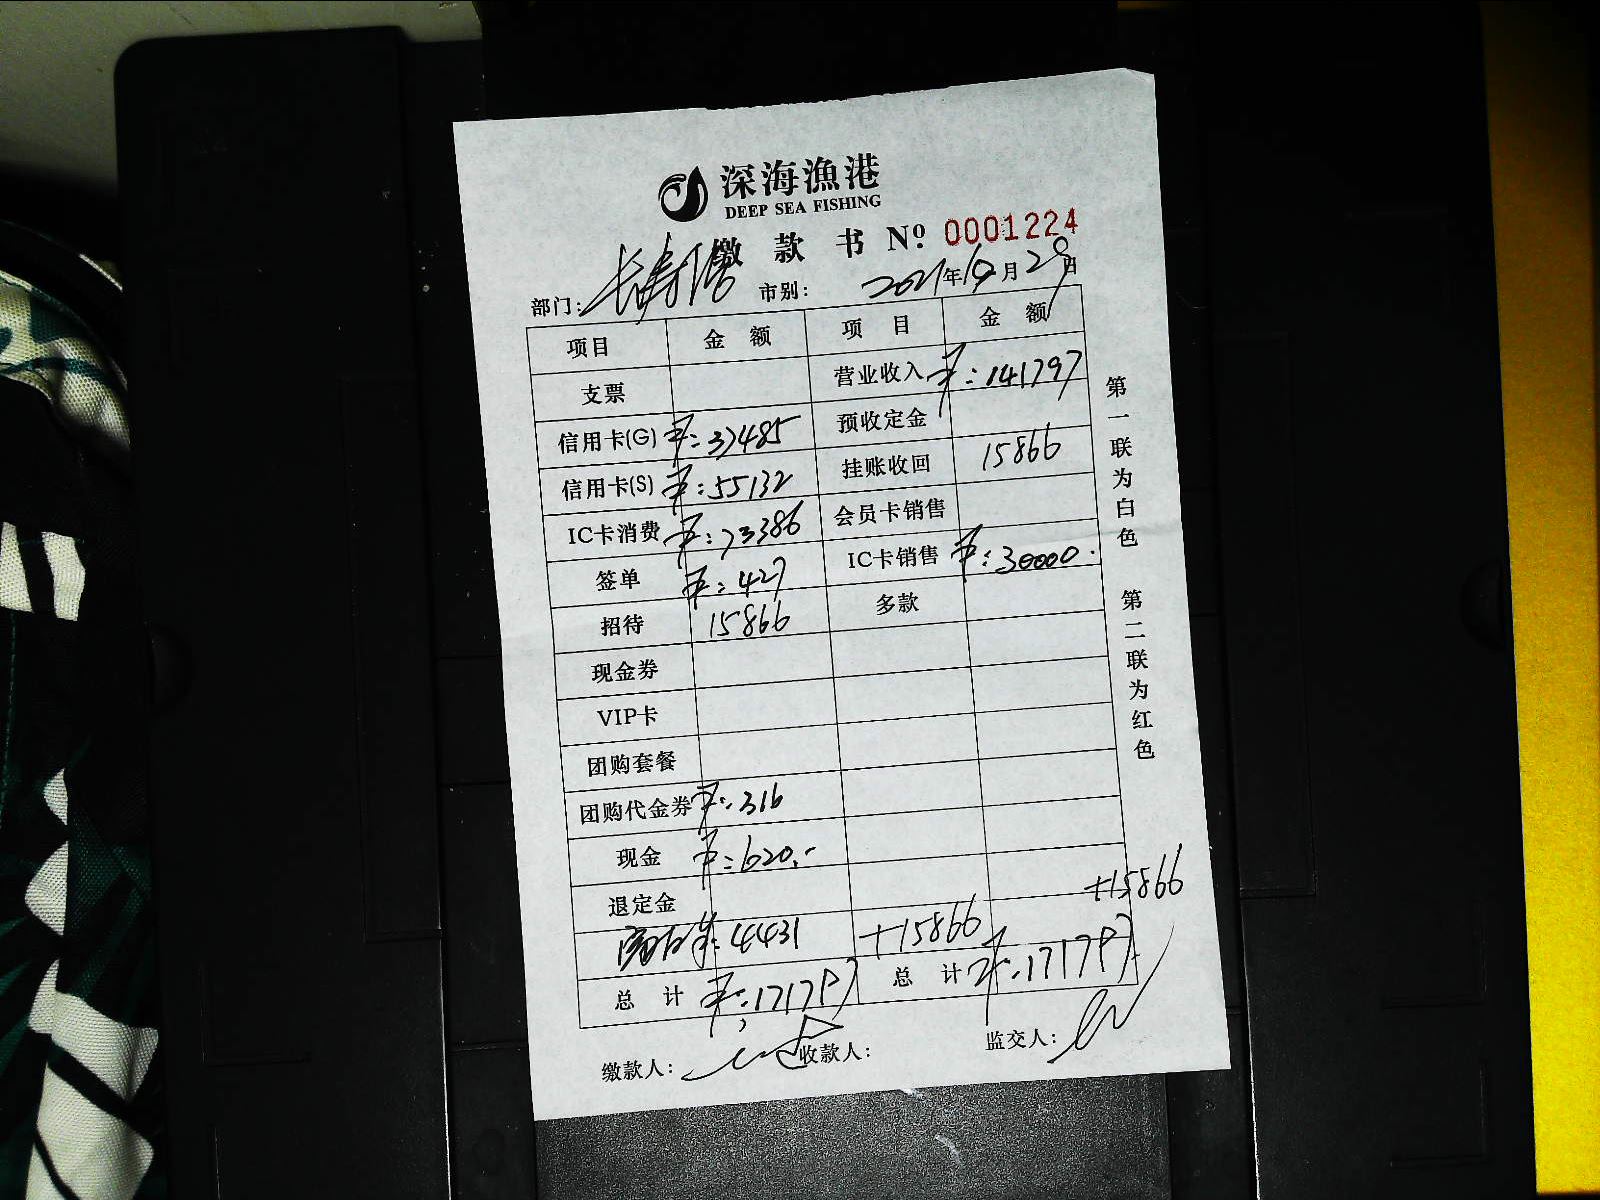 深海渔港
DEEP SEA FISHING
缴 款 书 Nº: 0001224
部门: 长寿 市别: 2021年10月29日
项目 金 额 项 目 金 额
支票 营业收入 ¥:141797
信用卡(G) ¥:37485 预收定金
信用卡(S) ¥:55132 挂账收回 15866
IC卡消费 ¥:73386 会员卡销售
签单 ¥:427 IC卡销售 ¥:30000.
招待 15866 多款
现金券
VIP卡
团购套餐
团购代金券 ¥:316
现金 ¥:620.-
退定金 +15866
4431 +15866
总 计 ¥:171797 总 计 ¥:171797
缴款人: 收款人: 监交人:
第一联为白色 第二联为红色